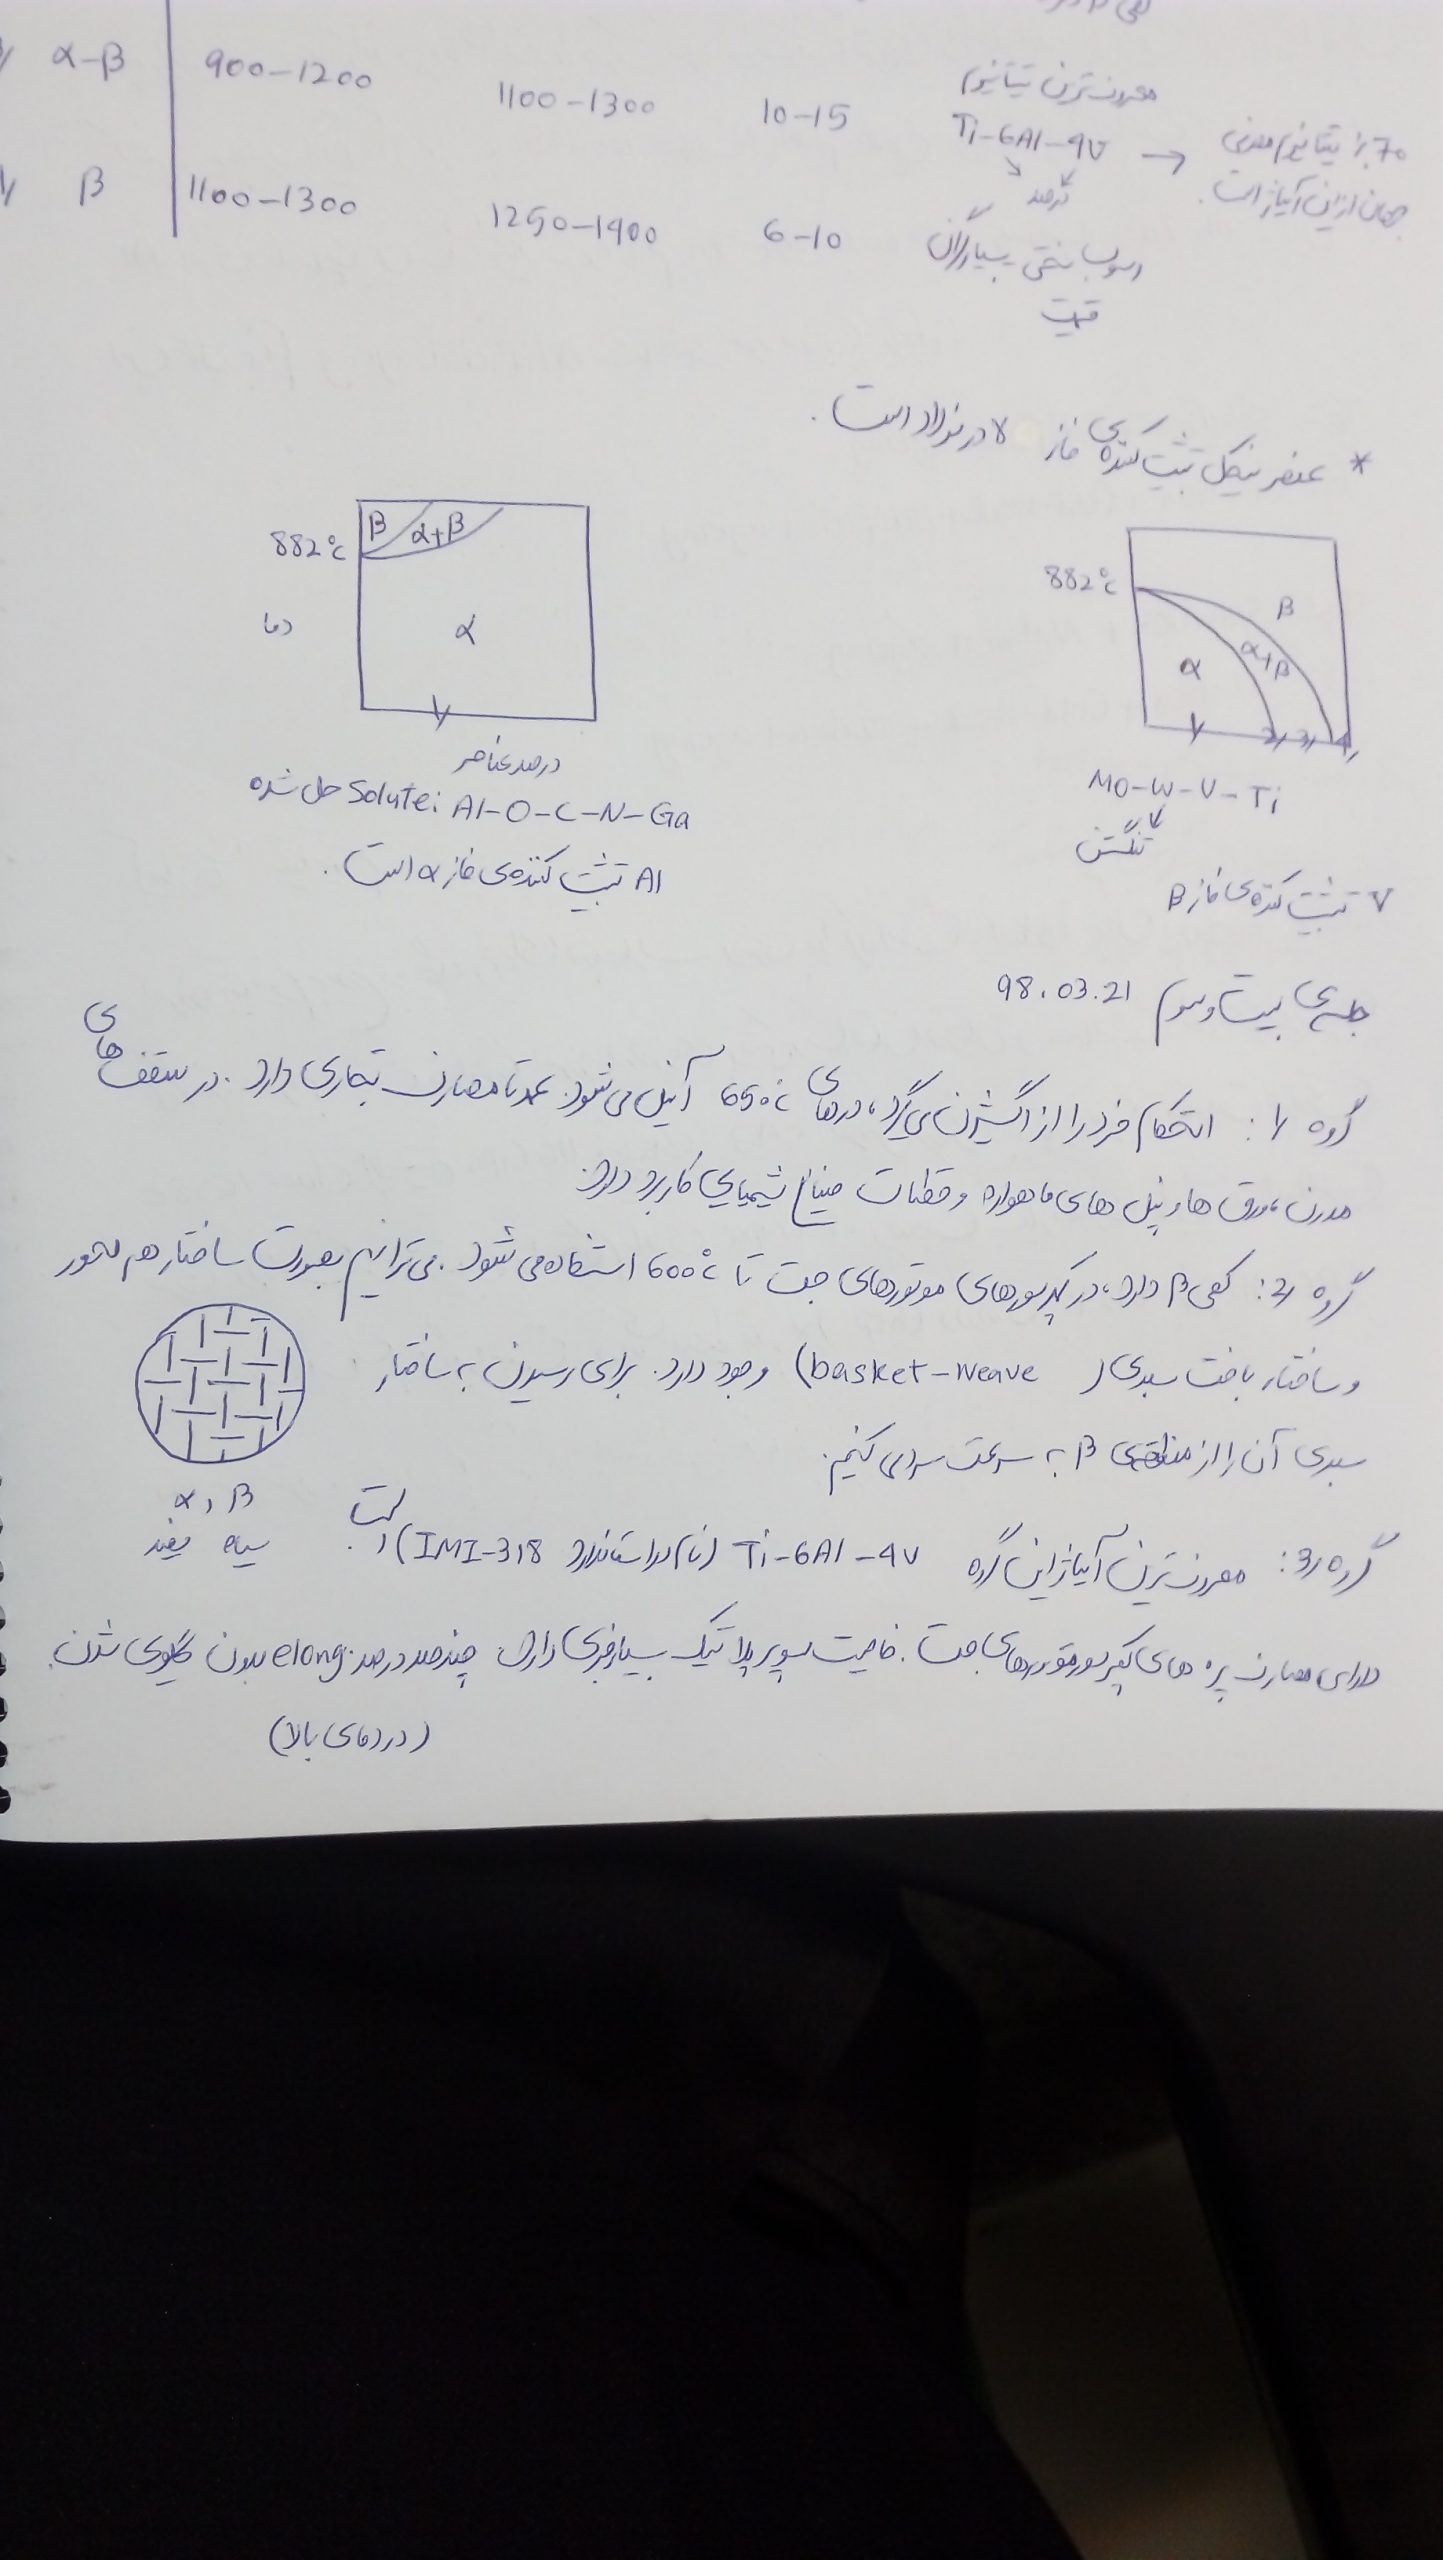 α-β 900-1200 1100-1300 10-15 معروف‌ترین تیتانیوم
Ti-6Al-4V → 70٪ تیتانیوم مصرفی
درصد جهان از این آلیاژ است.
β 1100-1300 1250-1400 6-10 رسوب سختی بسیار گران
قیمت
* عنصر نیکل تثبیت کننده‌ی فاز γ در فولاد است.
882°c β α+β
دما α
1/
درصد عناصر
حل شده Solute: Al-O-C-N-Ga
Al تثبیت کننده‌ی فاز α است.
882°c β
α α+β
1/ 2/ 3/ 4/
Mo-W-V-Ti
تنگستن
V تثبیت کننده‌ی فاز β
جلسه‌ی بیست و سوم 98.03.21
گروه 1/: استحکام خود را از اکسیژن می‌گیرد، در دمای 650°c آنیل می‌شود. عمدتا مصارف تجاری دارد. در سقف‌های
مدرن، ورق‌ها و پنل‌های ماهواره و قطعات صنایع شیمیایی کاربرد دارد.
گروه 2/: کمی β دارد، در کمپرسورهای موتورهای جت تا 600°c استفاده می‌شود. می‌توانیم بصورت ساختار هم محور
و ساختار بافت سبدی (basket-weave) وجود دارد. برای رسیدن به ساختار
سبدی آن را از منطقه‌ی β به سرعت سرد می‌کنیم.
α, β
سیاه سفید
گروه 3/: معروف‌ترین آلیاژ این گروه Ti-6Al-4V (نام در استاندارد IMI-318) است.
دارای مصارف پره‌های کمپرسور موتورهای جت. خاصیت سوپر پلاستیک بسیار خوبی دارد، چند صد درصد elong. بدون گلویی شدن.
(در دمای بالا)